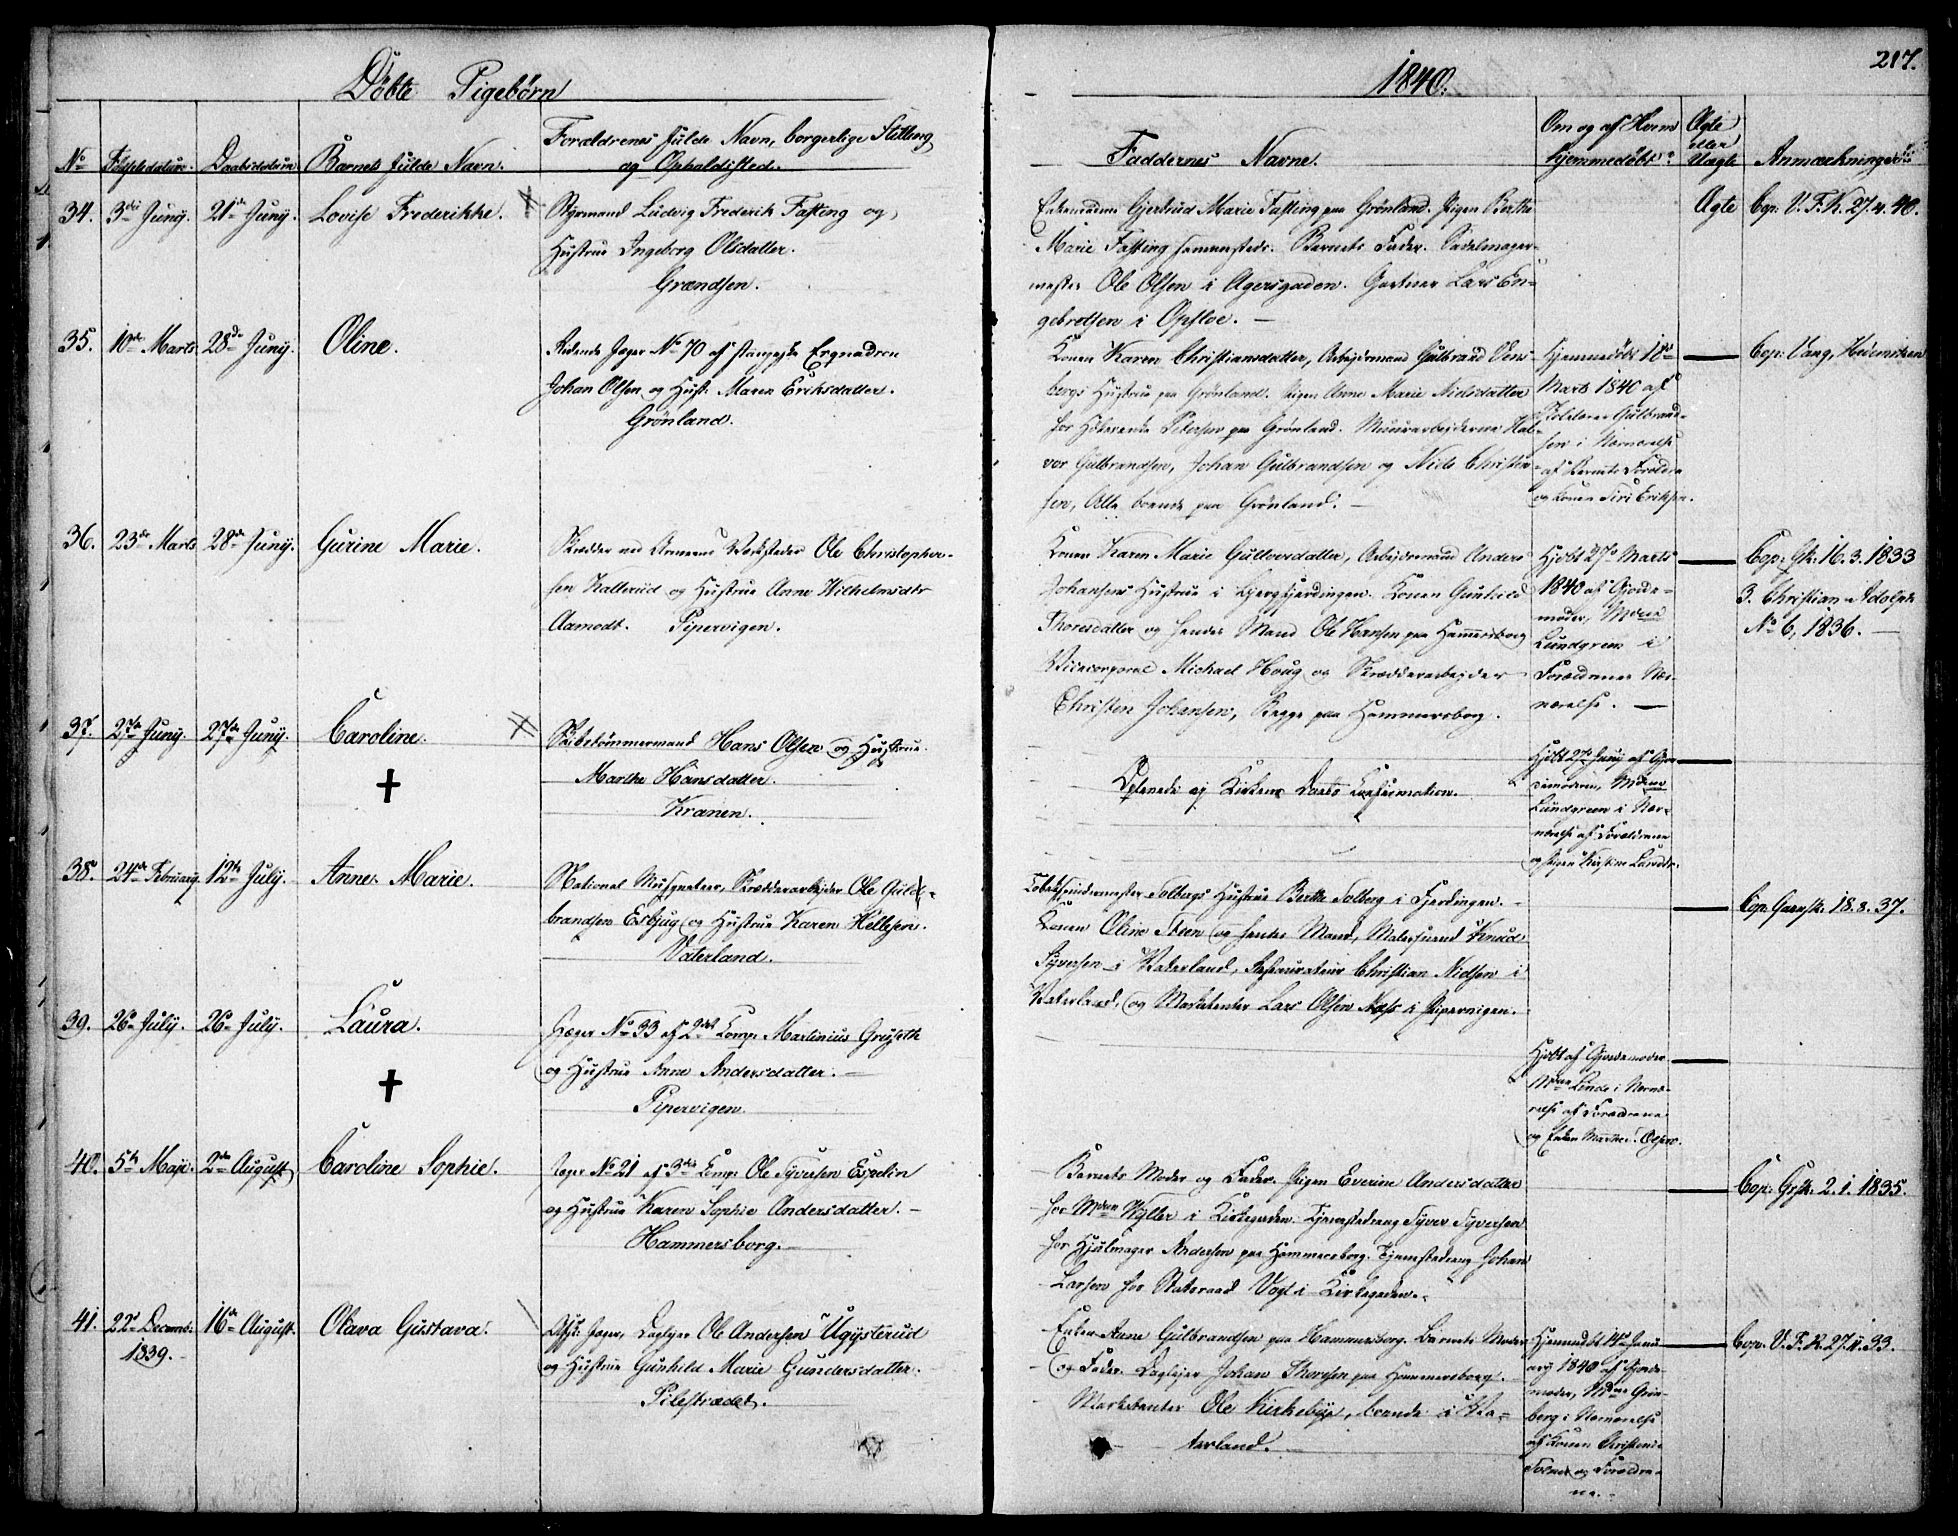 Döbte Pigebörn
1840.
217.
No
Födselsdatum.
Daabsdatum
Barnets fulde Navn.
Forældrenes fulde Navn, borgerlige Stilling
og Opholdssted.
Faddernes Navne.
Om og af Hvem
hjemmedöbt?
Ægte
eller
Uægte
Anmærkninger
34. 3die Juny. 21de Juny. Lovise Frederikke.
Styrmand Ludvig Frederik Fasting og
Hustrue Ingeborg Olsdatter.
Grændsen.
Enkemadme Gjertrud Marie Fasting paa Grönland. Pigen Berthe
Marie Fasting sammesteds. Barnets Fader. Sadelmager-
mester Ole Olsen i Agersgaden. Gartner Lars En-
gebretsen i Opsloe. —
Ægte
Cop. V. F. K. 27. 4. 40.
35. 10de Marts 28de Juny. Oline.
Ridende Jæger No 70 af
Johan Olsen og Hust. Maren Eriksdatter.
Grönland.
Konen Karen Christiansdatter, Arbejdsmand Gulbrand
bergs Hustrue paa Grönland. Pigen Anne Marie Nielsdatter
for Pedersen paa Grönland. Muurarbejderne Hal-
vor Gulbrandsen, Johan Gulbrandsen og Niels Christen-
sen, Alle boende paa Grönland. —
Hjemmedöbt 18de
Marts 1840 af
Gulbrand-
sen i Nærværelse
af Barnets Forældre
og Konen Siri Eriksen.
Cop: Vang, Hedemarken
36. 23de Marts 28de Juny. Gurine Marie.
Skrædder ved Armeens Værksteder Ole Christopher-
sen Kallerud og Hustrue Anne Wilhelmsdtr
Aamodt. Pipervigen.
Konen Karen Marie Gulloversdatter, Arbejdsmand Anders
Johansens Hustrue i Bjergfjerdingen. Konen Gunhild
Thoresdatter og hendes Mand Ole Hansen paa Hammersborg
Vicecorporal Michael Houg og Skrædderarbejder
Christen Johansen, Begge paa Hammersborg.
Hjdbt 27de Marts
1840 af Gjorde-
moder, Mdme
Lundgreen i
Forældrenes Nær-
værelse. —
Cop: Gk. 16. 3. 1833
3. Christian Adolph
No 6, 1836. —
37. 27de Juny. 27de Juny. Caroline.
Skibstömmermand Hans Olsen og Hustrue
Marthe Hansdatter.
Kranen.
Döde ej Kirkens Daabs Confirmation.
Hjdbt 27de Juny af Gjor-
demoderen, Mdme
Lundgreen i Nær-
værelse af Forældrene
og Pigen Kirstine Larsdtr.
38. 24de February. 12te July. Anne Marie.
National Musqueteer, Skrædderarbejder Ole Guld-
brandsen Esbjug og Hustrue Karen Hellesen.
Vaterland.
Solbergs Hustrue Berthe Solberg i Fjerdingen.
Konen Oline Steen og hendes Mand, Knud
Syversen i Vaterland, Restaurateur Christian Nielsen i
Vaterland, og Marketenter Lars Olsen Næss i Pipervigen.
Cop. Garnsk. 18. 8. 37.
39. 26de July. 26de July. Laura.
Jæger No 33 af 2det Comp. Martinius Gruseth
og Hustrue Anne Andersdatter. —
Pipervigen.
Hjdbt af Gjordemoder
Mdme Linde i Nærvæ-
relse af Forældrene
og Enken Marthe Olsen.
40. 5te Maji. 2de August Caroline Sophie.
Jæger No 21 af 3die Comp. Ole Syversen Espelin
og Hustrue Karen Sophie Andersdatter. —
Hammersborg. —
Barnets Moder og Fader. Pigen Everine Andersdatter
hos Mdme Wyller i Kirkegaden. Tjenestedreng Syver Syversen
hos Hjulmager Andersen paa Hammersborg. Tjenestedreng Johan
Larsen hos Statsraad Vogt i Kirkegaden.
Cop. Gsk. 2. 1. 1835.
41. 22de Decemb: 16de August. Olava Gustava.
1839.
Afsk: Jæger, Daglejer Ole Andersen Ugysterud
og Hustrue Gunhild Marie Gundersdatter.
Pilestrædet.
Enken Anne Gulbrandsen paa Hammersborg. Barnets Moder
og Fader. Daglejer Johan Thoresen paa Hammersborg.
Marketenter Ole Kirkebye, boende i Va-
terland.
Hjemmedbt 14de Janu-
ary 1840 af Gjorde-
moder, Mdme Grön-
berg i Nærværelse
af Konen Christense
og Forældre-
ne. —
Cop. V. F. K. 27. 11. 33.